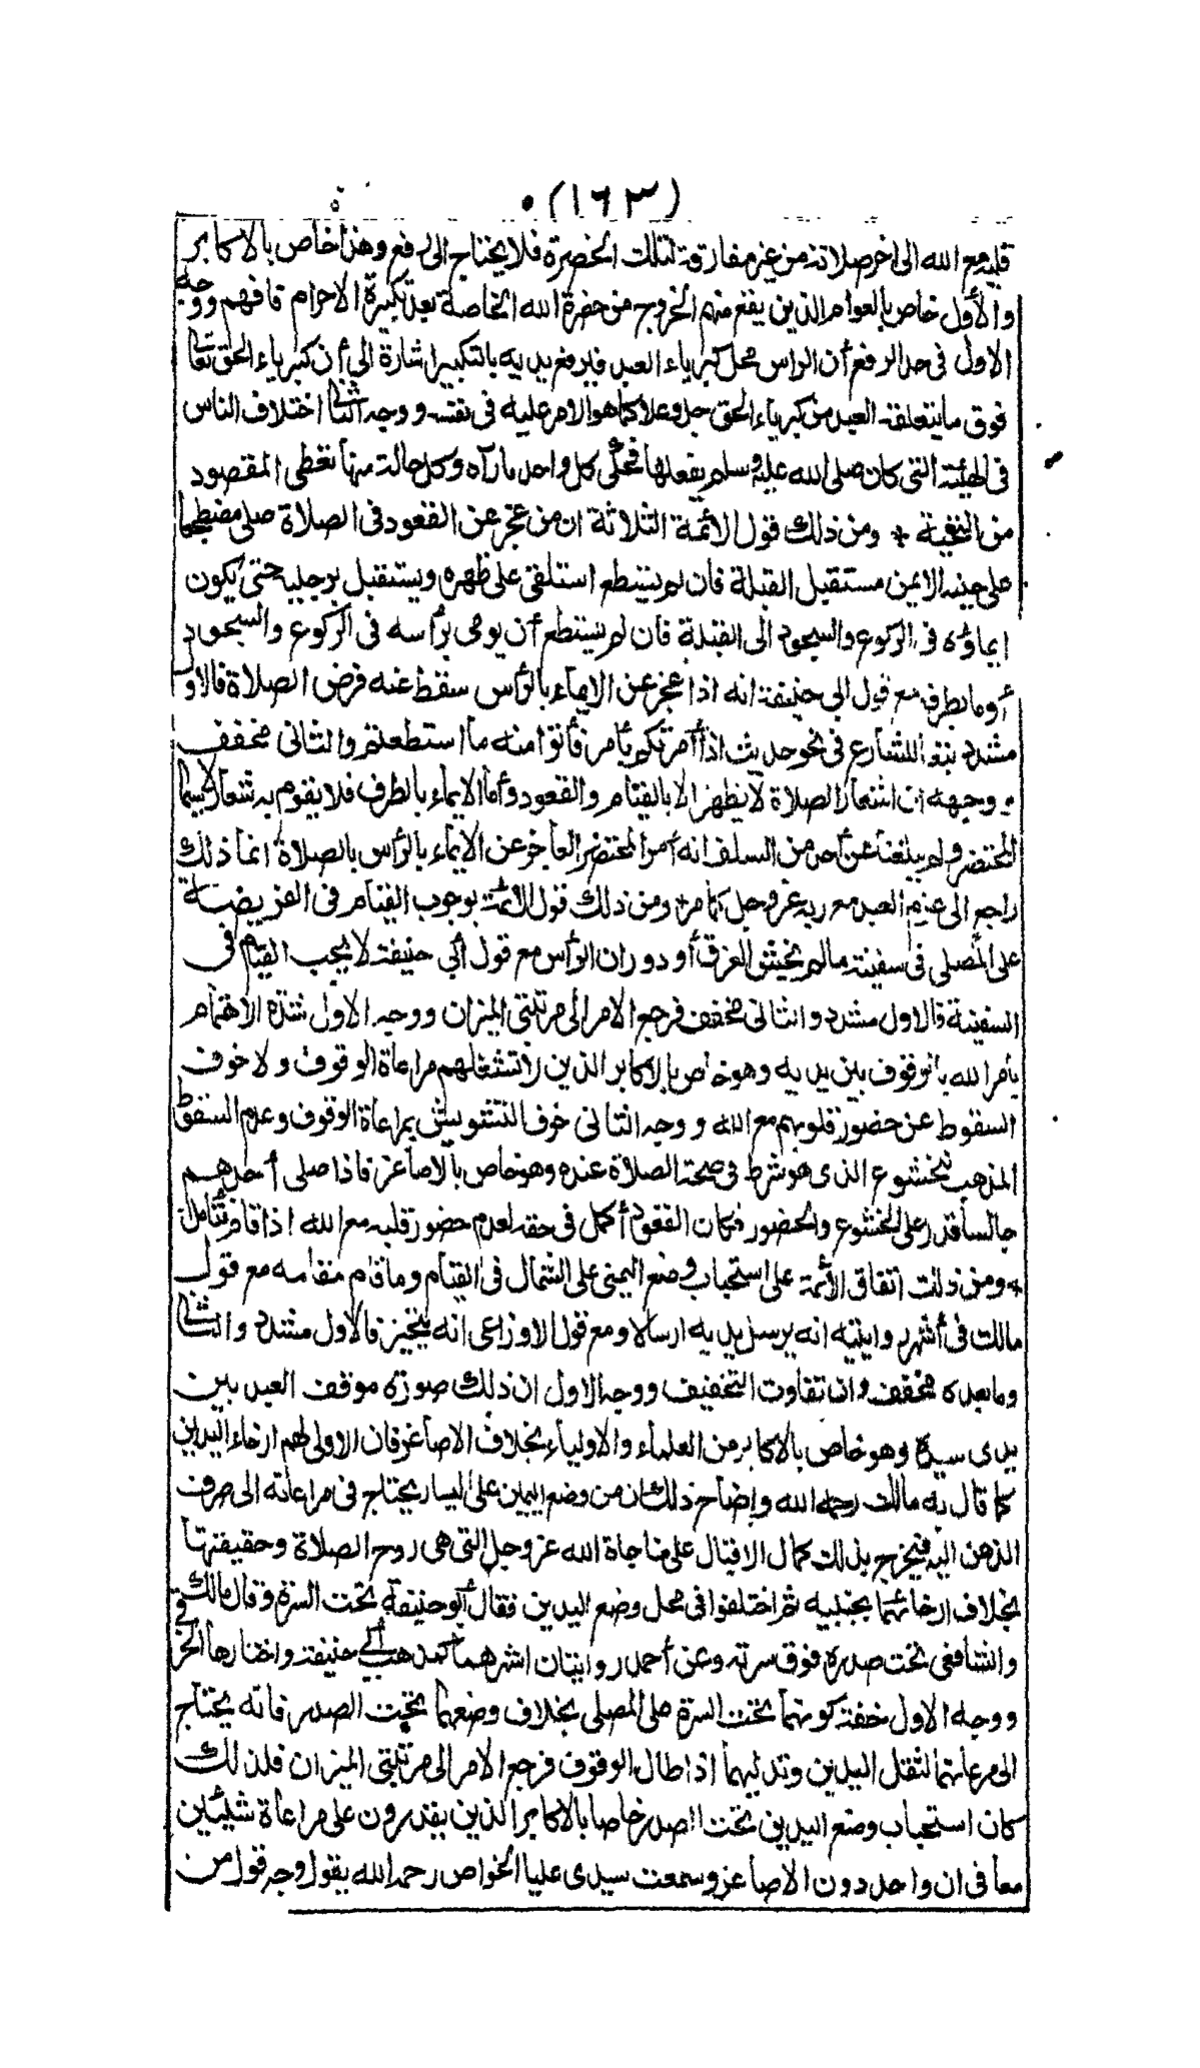 (١٦٣)
قلبه مع الله الى اخر صلاته من غير مفارقة لتلك الحضرة فلا يحتاج الى رفع وهذا خاص بالاكابر
والأول خاص بالعوام الذين يقع منهم الخروج من حضرة الله الخاصة بعد تكبيرة الاحرام فافهم ووجه
الاول فى حد الرفع أن الراس محل كبرياء العبد فيرفع يديه بالتكبير اشارة الى أن كبرياء الحق تعالى
فوق ما يتعلقه العبد من كبرياء الحق جل وعلا كما هو الامر عليه فى نفسه ووجه الثانى اختلاف الناس
فى الهيئة التى كان صلى الله عليه وسلم يفعلها فحكى كل واحد ما رآه وكل حالة منها تعطى المقصود
من التحية * ومن ذلك قول الأئمة الثلاثة ان من عجز عن القعود فى الصلاة صلى مضطجعا
على جنبه الايمن مستقبل القبلة فان لم يستطع استلقى على ظهره ويستقبل برجليه حتى يكون
ايماؤه فى الركوع والسجود الى القبلة فان لم يستطع أن يومى برأسه فى الركوع والسجود
أومأ بطرفه مع قول ابى حنيفة انه اذا عجز عن الايماء بالرأس سقط عنه فرض الصلاة فالاول
مشدد تبعا للشارع فى نحو حديث اذا أمرتكم بأمر فأتوا منه ما استطعتم والثانى مخفف
ووجهه ان شعار الصلاة لا يظهر الا بالقيام والقعود وأما الايماء بالطرف فلا يقوم به شعار لاسيما
المحتضر ولم يبلغنا عن أحد من السلف انه أمر المحتضر العاجز عن الايماء بالرأس بالصلاة انما ذلك
راجع الى عزم العبد مع ربه عز وجل كما مر * ومن ذلك قول الأئمة بوجوب القيام فى الفريضة
على المصلى فى سفينة مالم يخش الغرق أو دوران الرأس مع قول أبى حنيفة لا يجب القيام فى
السفينة فالاول مشدد والثانى مخفف فرجع الامر الى مرتبتى الميزان ووجه الاول شدة الاهتمام
بأمر الله بالوقوف بين يديه وهو خاص بالاكابر الذين لا تشغلهم مراعاة الوقوف ولا خوف
السقوط عن حضور قلوبهم مع الله ووجه الثانى خوف التشويش بمراعاة الوقوف وعدم السقوط
المذهب للخشوع الذى هو شرط فى صحة الصلاة عنده وهو خاص بالاصاغر فاذا صلى أحدهم
جالسا قدر على الخشوع والحضور فكان القعود أكمل فى حقه لعدم حضور قلبه مع الله اذا قام فتأمل
* ومن ذلك اتفاق الأئمة على استحباب وضع اليمنى على الشمال فى القيام وما قام مقامه مع قول
مالك فى أشهر روايتيه انه يرسل يديه ارسالا ومع قول الاوزاعى انه يتخير فالاول مشدد والثانى
وما بعده مخفف وان تفاوت التخفيف ووجه الاول ان ذلك صورة موقف العبد بين
يدى سيده وهو خاص بالاكابر من العلماء والاولياء بخلاف الاصاغر فان الاولى لهم ارخاء اليدين
كما قال به مالك رحمه الله وايضاح ذلك ان من وضع اليمين على اليسار يحتاج فى مراعاته الى صرف
الذهن اليه فيخرج بذلك كمال الاقبال على مناجاة الله عز وجل التى هى روح الصلاة وحقيقتها
بخلاف ارخائهما بجنبيه ثم اختلفوا فى محل وضع اليدين فقال أبو حنيفة تحت السرة وقال مالك
والشافعى تحت صدره فوق سرته وعن أحمد روايتان اشهرهما كمذهب أبى حنيفة واختارها الخرقى
ووجه الاول خفة كونهما تحت السرة على المصلى بخلاف وضعهما تحت الصدر فانه يحتاج
الى مرعاتهما لثقل اليدين وتدليهما اذا طال الوقوف فرجع الامر الى مرتبتى الميزان فلذلك
كان استحباب وضع اليدين تحت الصدر خاصا بالاكابر الذين يقدرون على مراعاة شيئين
معا فى ان واحد دون الاصاغر وسمعت سيدى عليا الخواص رحمه الله يقول وجه قول من